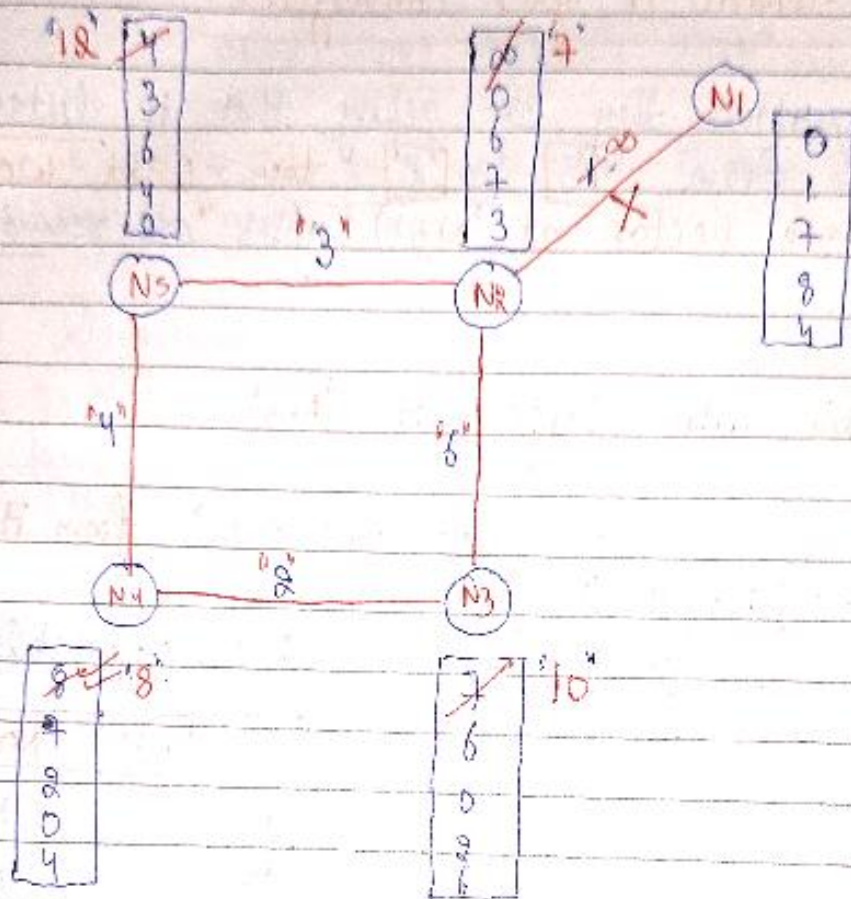 "12" 4
3
6
4
0
∞ "7"
0
6
7
3
N1
0
1
7
8
4
1 ∞
X
"3"
N5
N2
"4"
"6"
"2"
N4
N3
8 "8"
7
2
0
4
7 "10"
6
0
2